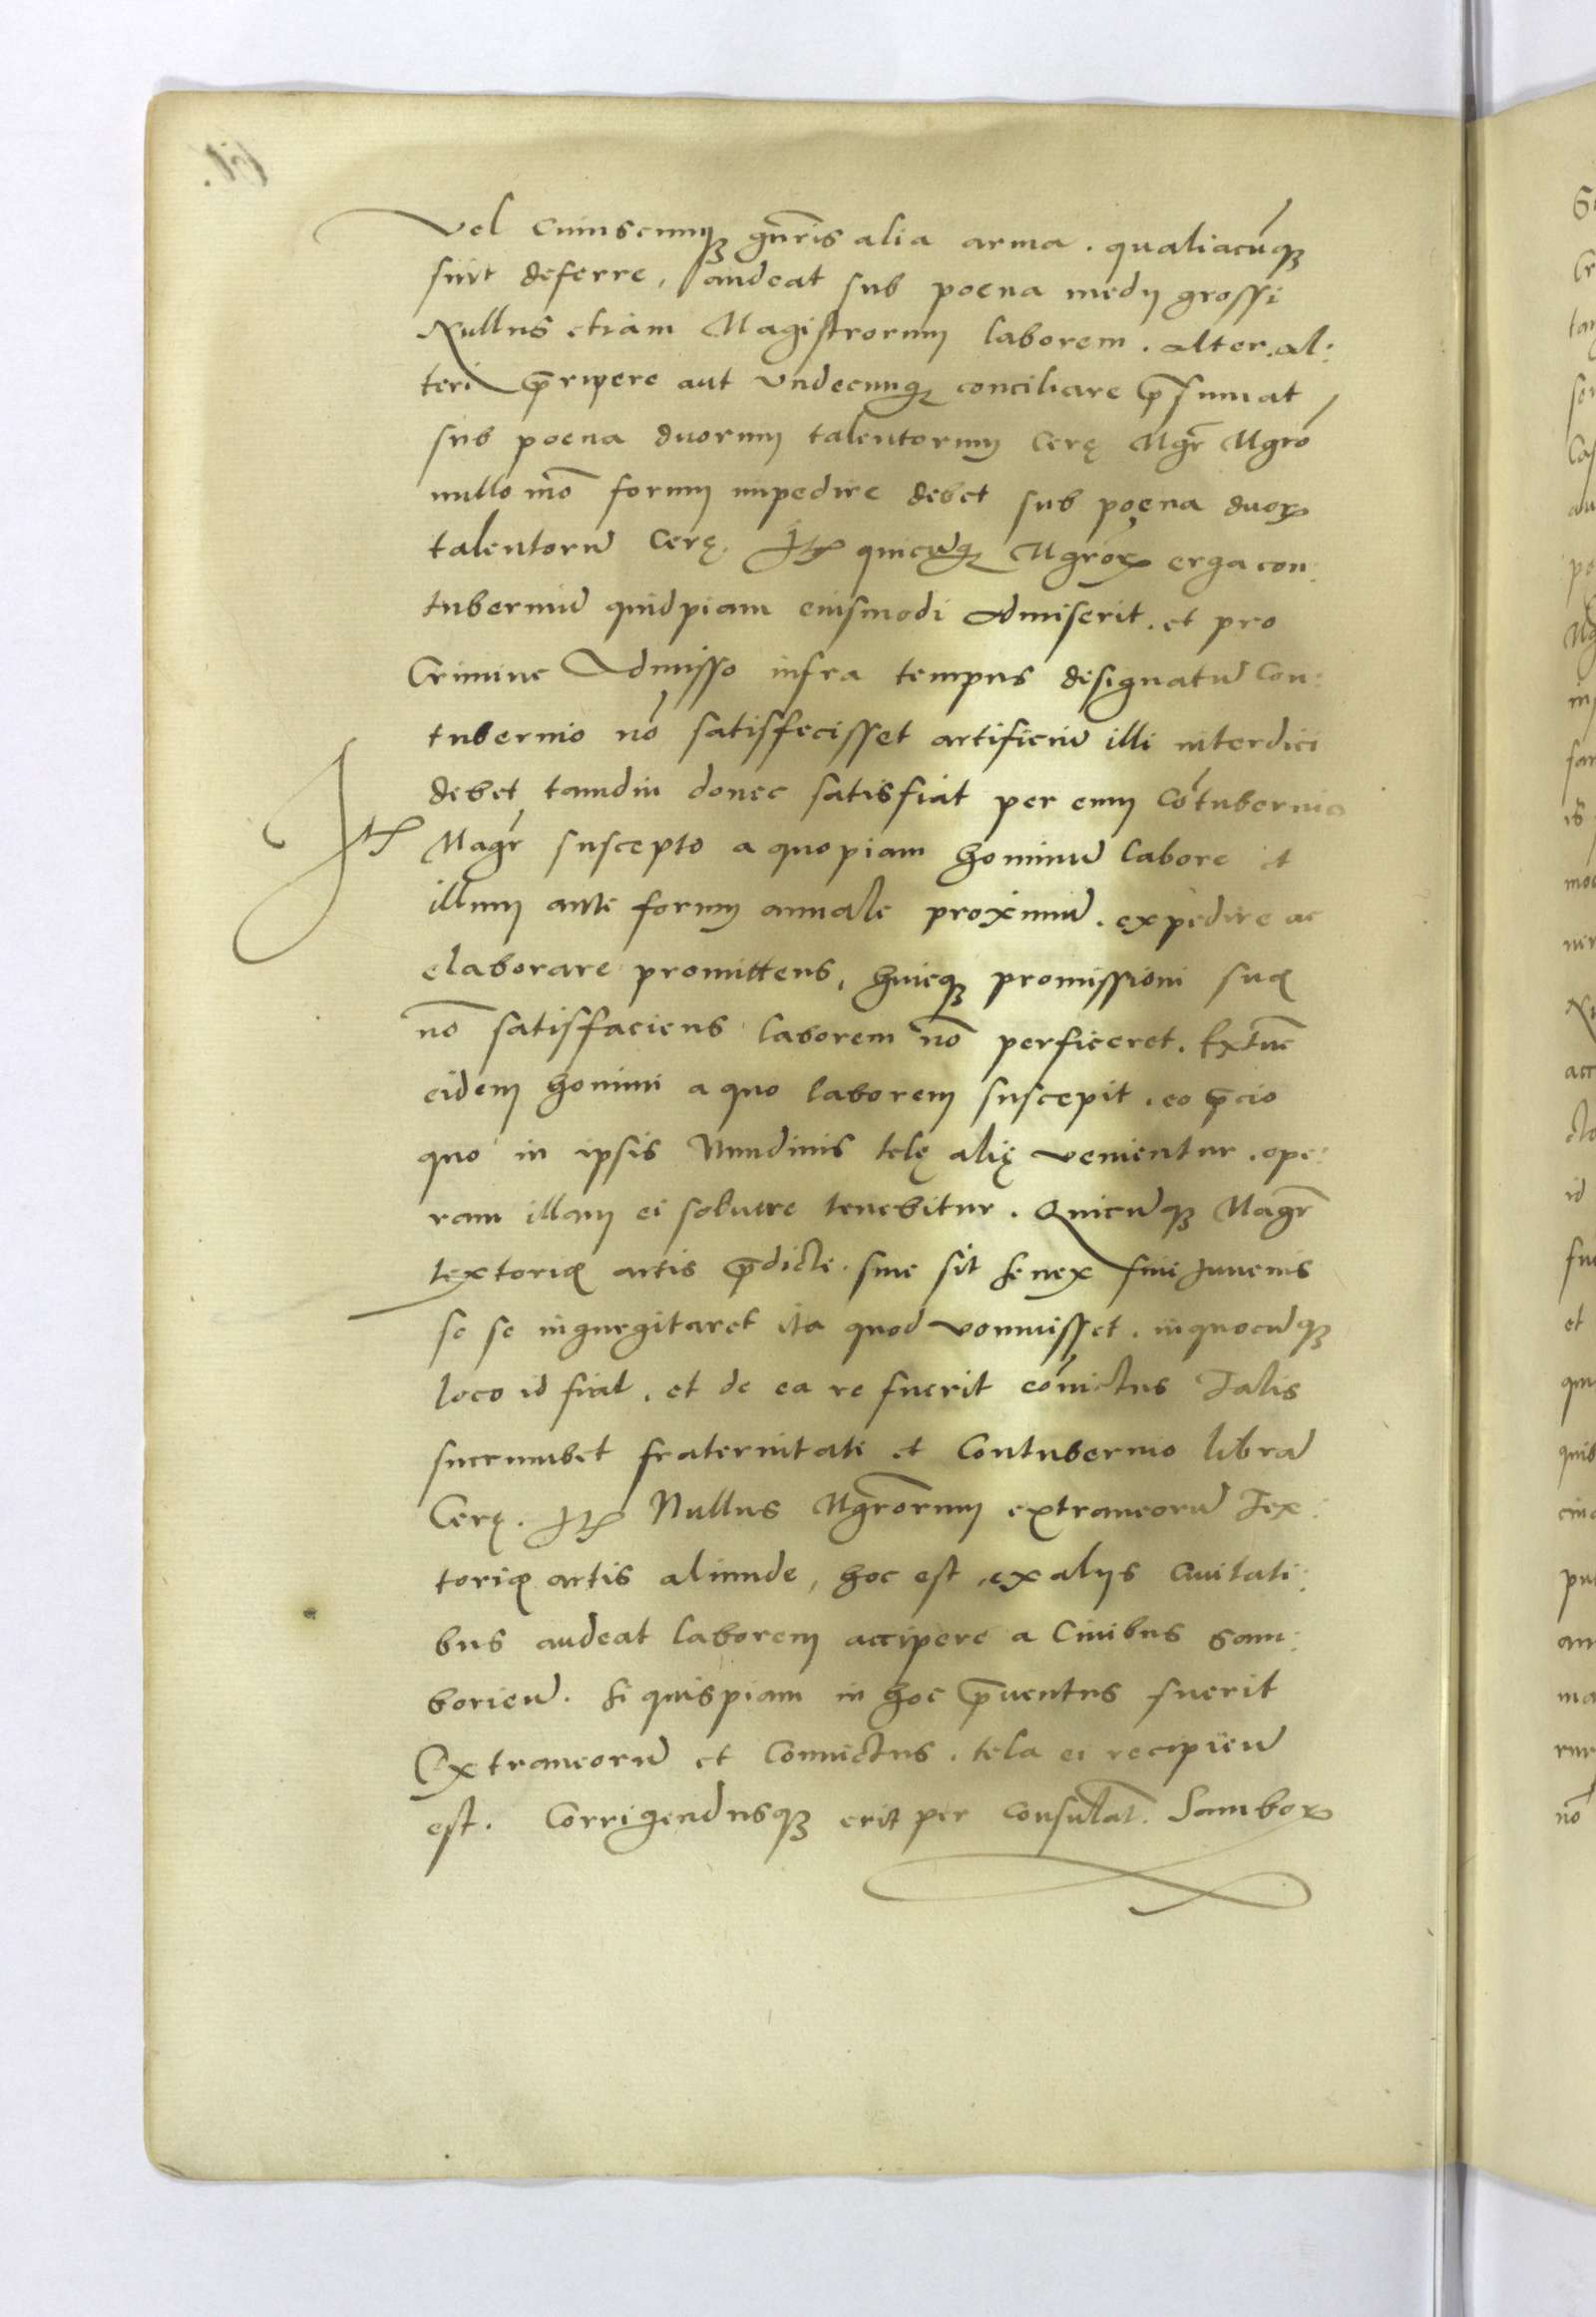 Vel cuiuscunqꝫ gn̄ris alia arma. qualiacūqꝫ
sint deferre, audeat sub poena medij grossi
Nullus etiam Magistrorum laborem. alter al:
teri p̄ripere aut vndecunqꝫ conciliare p̄sumat
sub poena duorum talentorum Cerę Mgr̄ Mgrō
nullo mō forum impedire debet sub poena duoꝝ
talentorū Cerę. Itꝫ quicūqꝫ Mgrōꝝ erga con:
tuberniū quidpiam eiusmodi Admiserit. et pro
Crimine Admisso infra tempus designatū Con:
tubernio nō satisfecisset artificiū illi interdici
debet tamdiu donec satisfiat per eum Cōtubernio
Itꝫ Magr̄ suscepto a quopiam hominū labore et
illum ante forum annale proximū. expedire ac
elaborare promittens, huicqꝫ promissioni suę
nō satisfaciens laborem nō perficeret. Extūc
eidem homini a quo laborem suscepit. eo p̄cio
quo in ipsis Nundinis telę alię venientur. ope:
ram illam ei soluere tenebitur. Quicūqꝫ Magr̄
textorię artis p̄dicte. siue sit senex siue Iuuenis
se se ingurgitaret ita quod vomuisset. in quocūqꝫ
loco id fiat. et de ea re fuerit cōuictus Talis
succumbet fraternitati et Contubernio librā
Cerę. Itꝫ Nullus Mgrōrum extraneorū Tex:
torię artis aliunde, hoc est, ex alijs Ciuitati:
bus audeat laborem accipere a Ciuibus Sam:
borien̄. Si quispiam in hoc p̄uentus fuerit
Extraneorū et Conuictus. tela ei recipien̄
est. Corrigendusqꝫ erit per Consulat̄. Samboꝝ